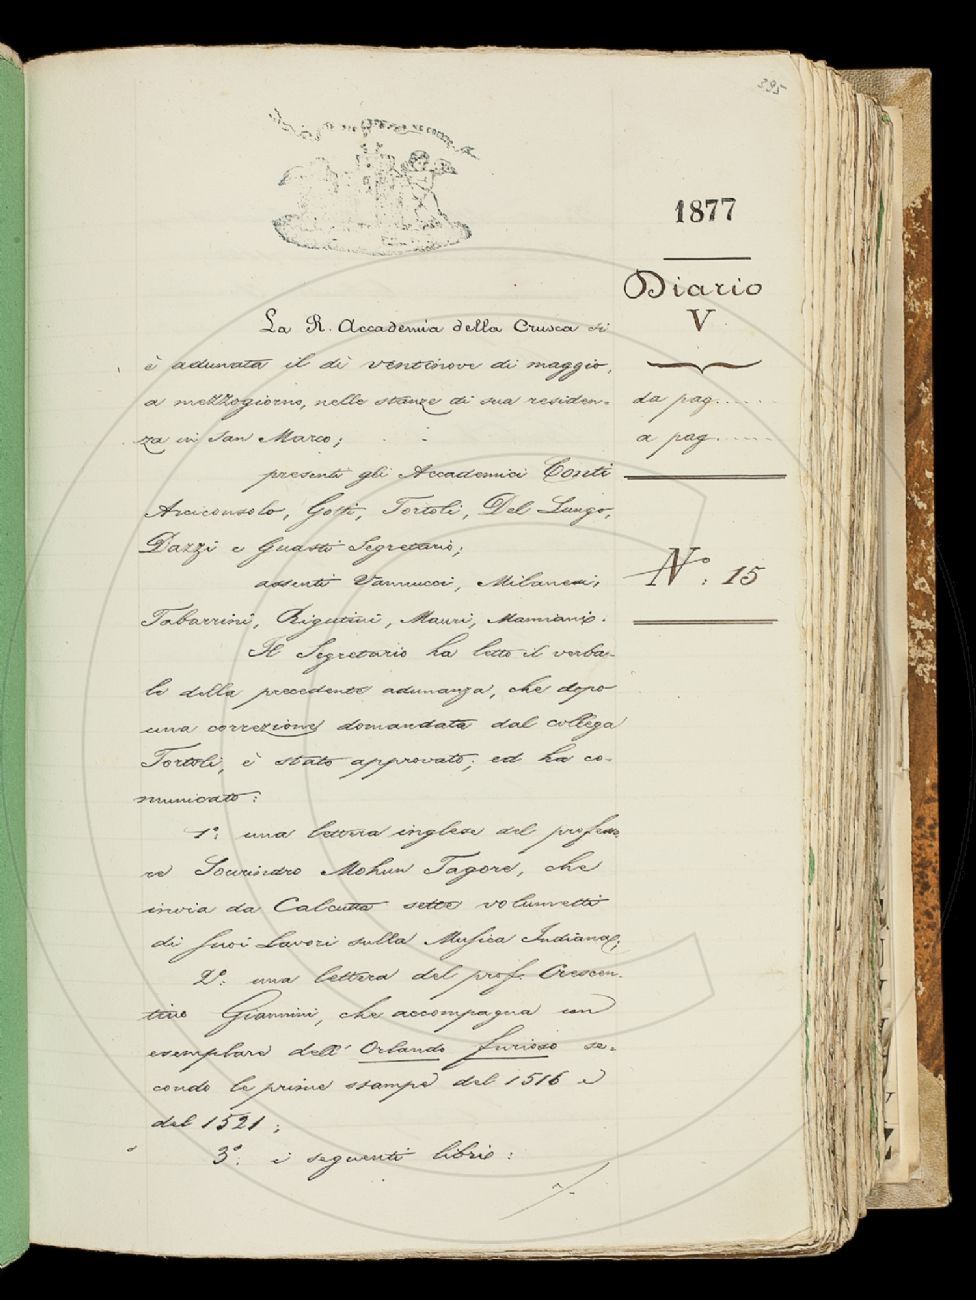 395
1877
Diario
V
da pag......
a pag......
N.º 15
La R. Accademia della Crusca si
è adunata il dì ventinove di maggio,
a mezzogiorno, nelle stanze di sua residen-
za in San Marco;
presenti gli Accademici Conti
Arciconsolo, Gotti, Tortoli, Del Lungo,
Dazzi e Guasti Segretario;
assenti Vannucci, Milanesi,
Tabarrini, Rigutini, Mauri, Mamiani.
Il Segretario ha letto il verba-
le della precedente adunanza, che dopo
una correzione domandata dal collega
Tortoli, è stato approvato; ed ha co-
municato:
1º: una lettera inglese del professo-
re Sourindro Mohun Tagore, che
invia da Calcutta sette volumetti
di suoi lavori sulla Musica Indiana;
2º: una lettera del prof. Crescen-
tino Giannini, che accompagna un
esemplare dell' Orlando furioso se-
condo le prime stampe del 1516 e
del 1521;
3º: i seguenti libri: